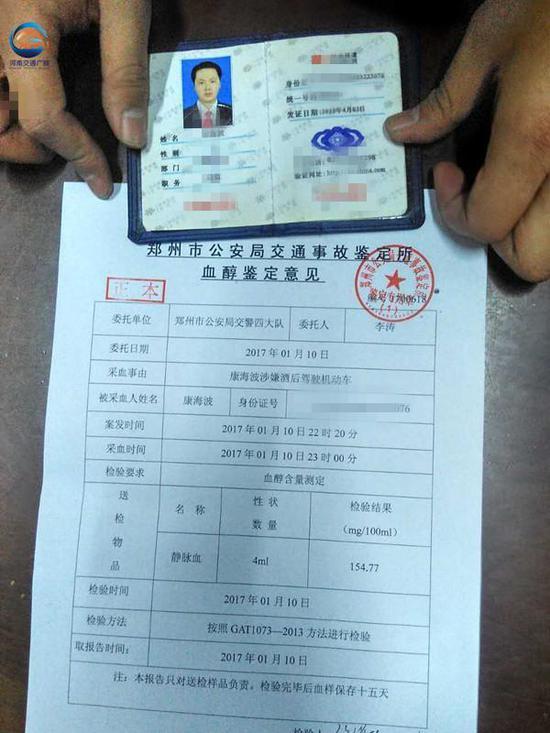 河南交通广播
身份证
统一号
发证日期:2013年4月03日
姓名
性别
部门
职务
验证网址:http://
郑州市公安局交通事故鉴定所
血醇鉴定意见
正本
编号1700618
委托单位 郑州市公安局交警四大队 委托人 李涛
委托日期 2017年01月10日
采血事由 康海波涉嫌酒后驾驶机动车
被采血人姓名 康海波 身份证号 076
案发时间 2017年01月10日22时20分
采血时间 2017年01月10日23时00分
检验要求 血醇含量测定
送检物品
名称 性状 数量 检验结果 (mg/100ml)
静脉血 4ml 154.77
检验时间 2017年01月10日
检验方法 按照GAT1073—2013方法进行检验
取报告时间: 2017年01月10日
注:本报告只对送检样品负责。检验完毕后血样保存十五天